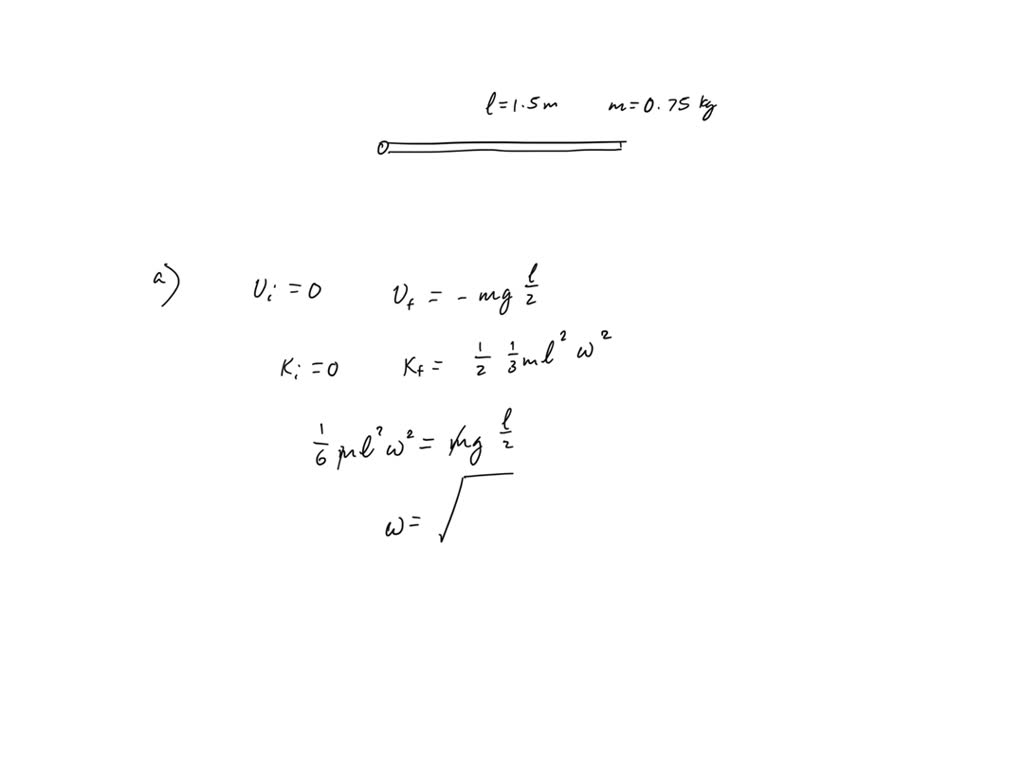 l=1.5m m=0.75 kg
a) Ui =0 Uf = - mg l/2
Ki =0 Kf = 1/2 1/3 ml² ω²
1/6 ml² ω² = mg l/2
ω= √